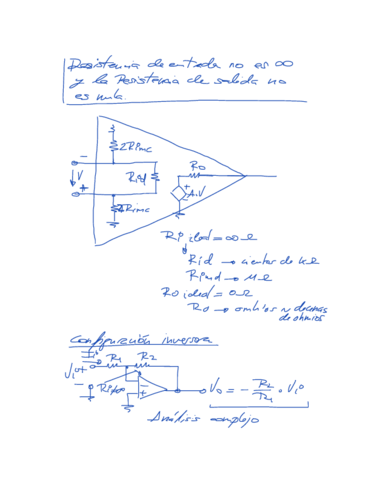 Resistencia de entrada no es ∞
y la Resistencia de salida no
es nula.
2Rimc
− Ro
V Rid A.V
+
2Rimc
Ri ideal = ∞Ω
Rid → cientos de kΩ
Rimd → MΩ
Ro ideal = 0Ω
Ro → ohmios ~ decenas
de ohmios
Configuración inversora
R1 R2
Vi +
−
Vo = − R2/R1 · Vi
Análisis complejo